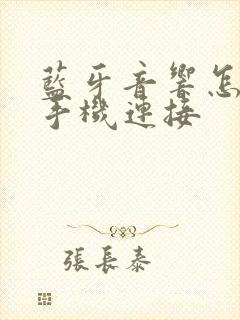 藍牙音響怎
手機連接
張長泰